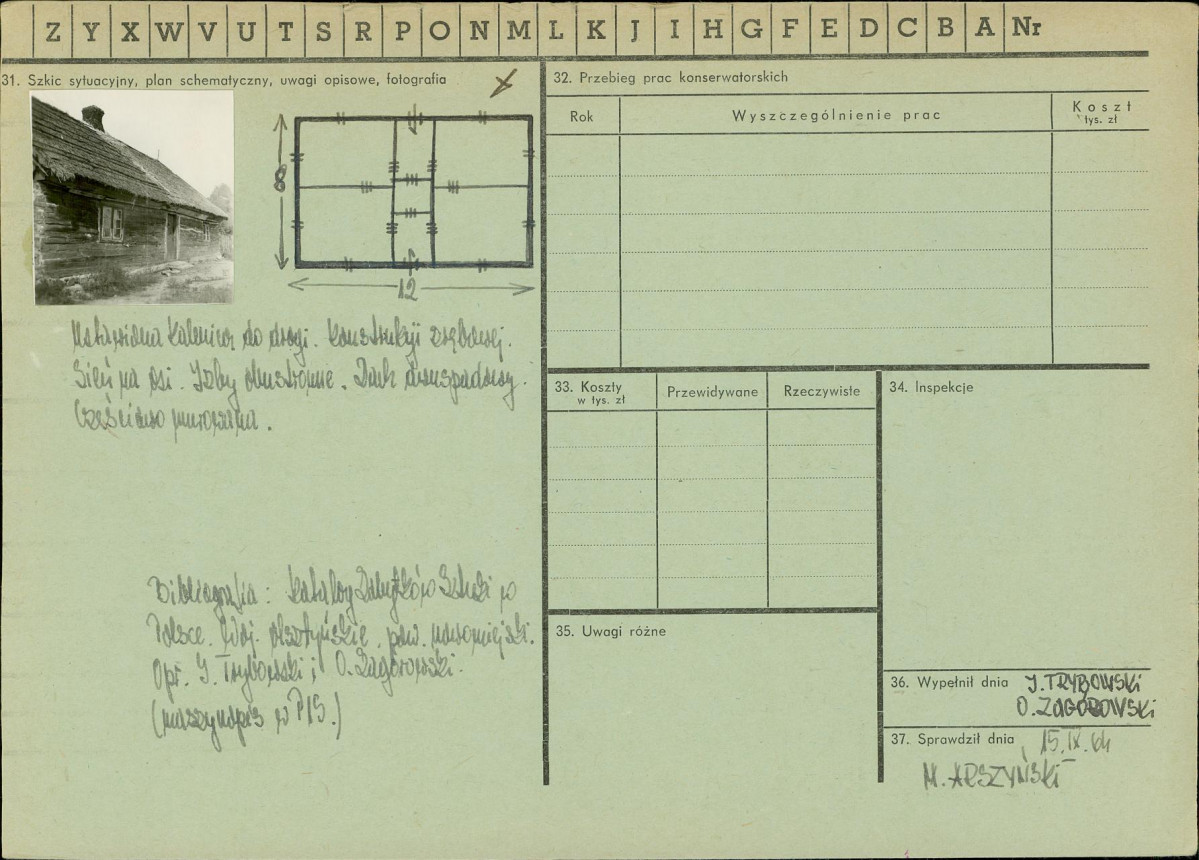 Z Y X W V U T S R P O N M L K J I H G F E D C B A Nr
31. Szkic sytuacyjny, plan schematyczny, uwagi opisowe, fotografia
8
12
Ustawiona kalenicą do drogi. Konstrukcji zrębowej.
Sień na osi. Izby obustronne. Dach dwuspadowy.
Częściowo murowana.
Bibliografia: Katalog Zabytków Sztuki w
Polsce. Woj. olsztyńskie, pow. nowomiejski.
Opr. J. Trybowski i O. Zagórowski.
(maszynopis w PIS.)
32. Przebieg prac konserwatorskich
Rok
Wyszczególnienie prac
Koszt
tys. zł
33. Koszty
w tys. zł
Przewidywane
Rzeczywiste
34. Inspekcje
35. Uwagi różne
36. Wypełnił dnia J. TRYBOWSKI
O. ZAGÓROWSKI
37. Sprawdził dnia 15.IX.64
M. ARSZYŃSKI